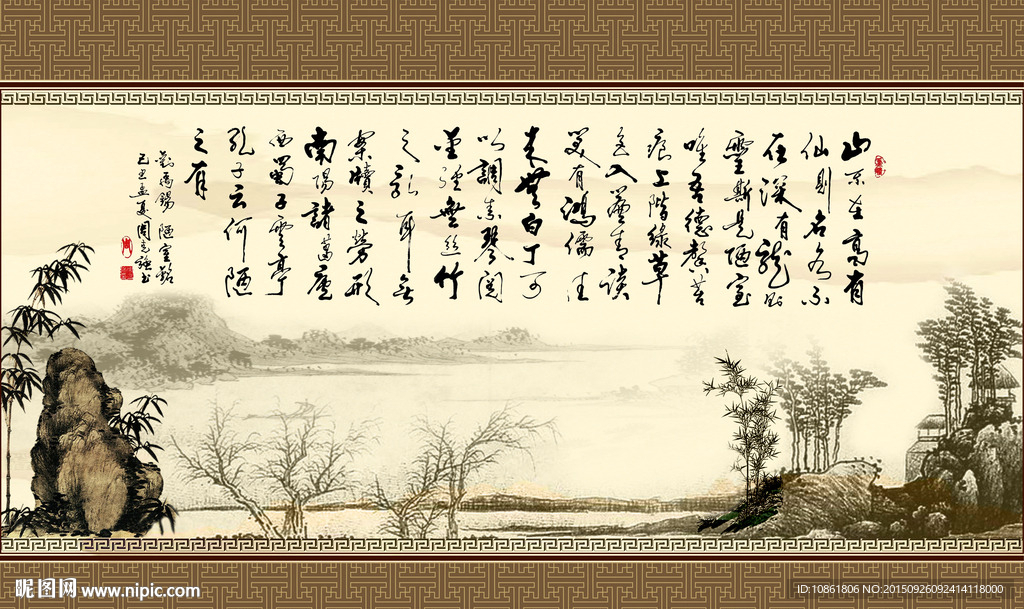 山不在高有
仙則名水不
在深有龍則
靈斯是陋室
唯吾德馨苔
痕上階綠草
色入簾青談
笑有鴻儒往
來無白丁可
以調素琴閱
金經無絲竹
之亂耳無
案牘之勞形
南陽諸葛廬
西蜀子雲亭
孔子云何陋
之有
劉禹錫 陋室銘
孟夏周書
昵图网 www.nipic.com
ID:10861806 NO:20150926092414118000